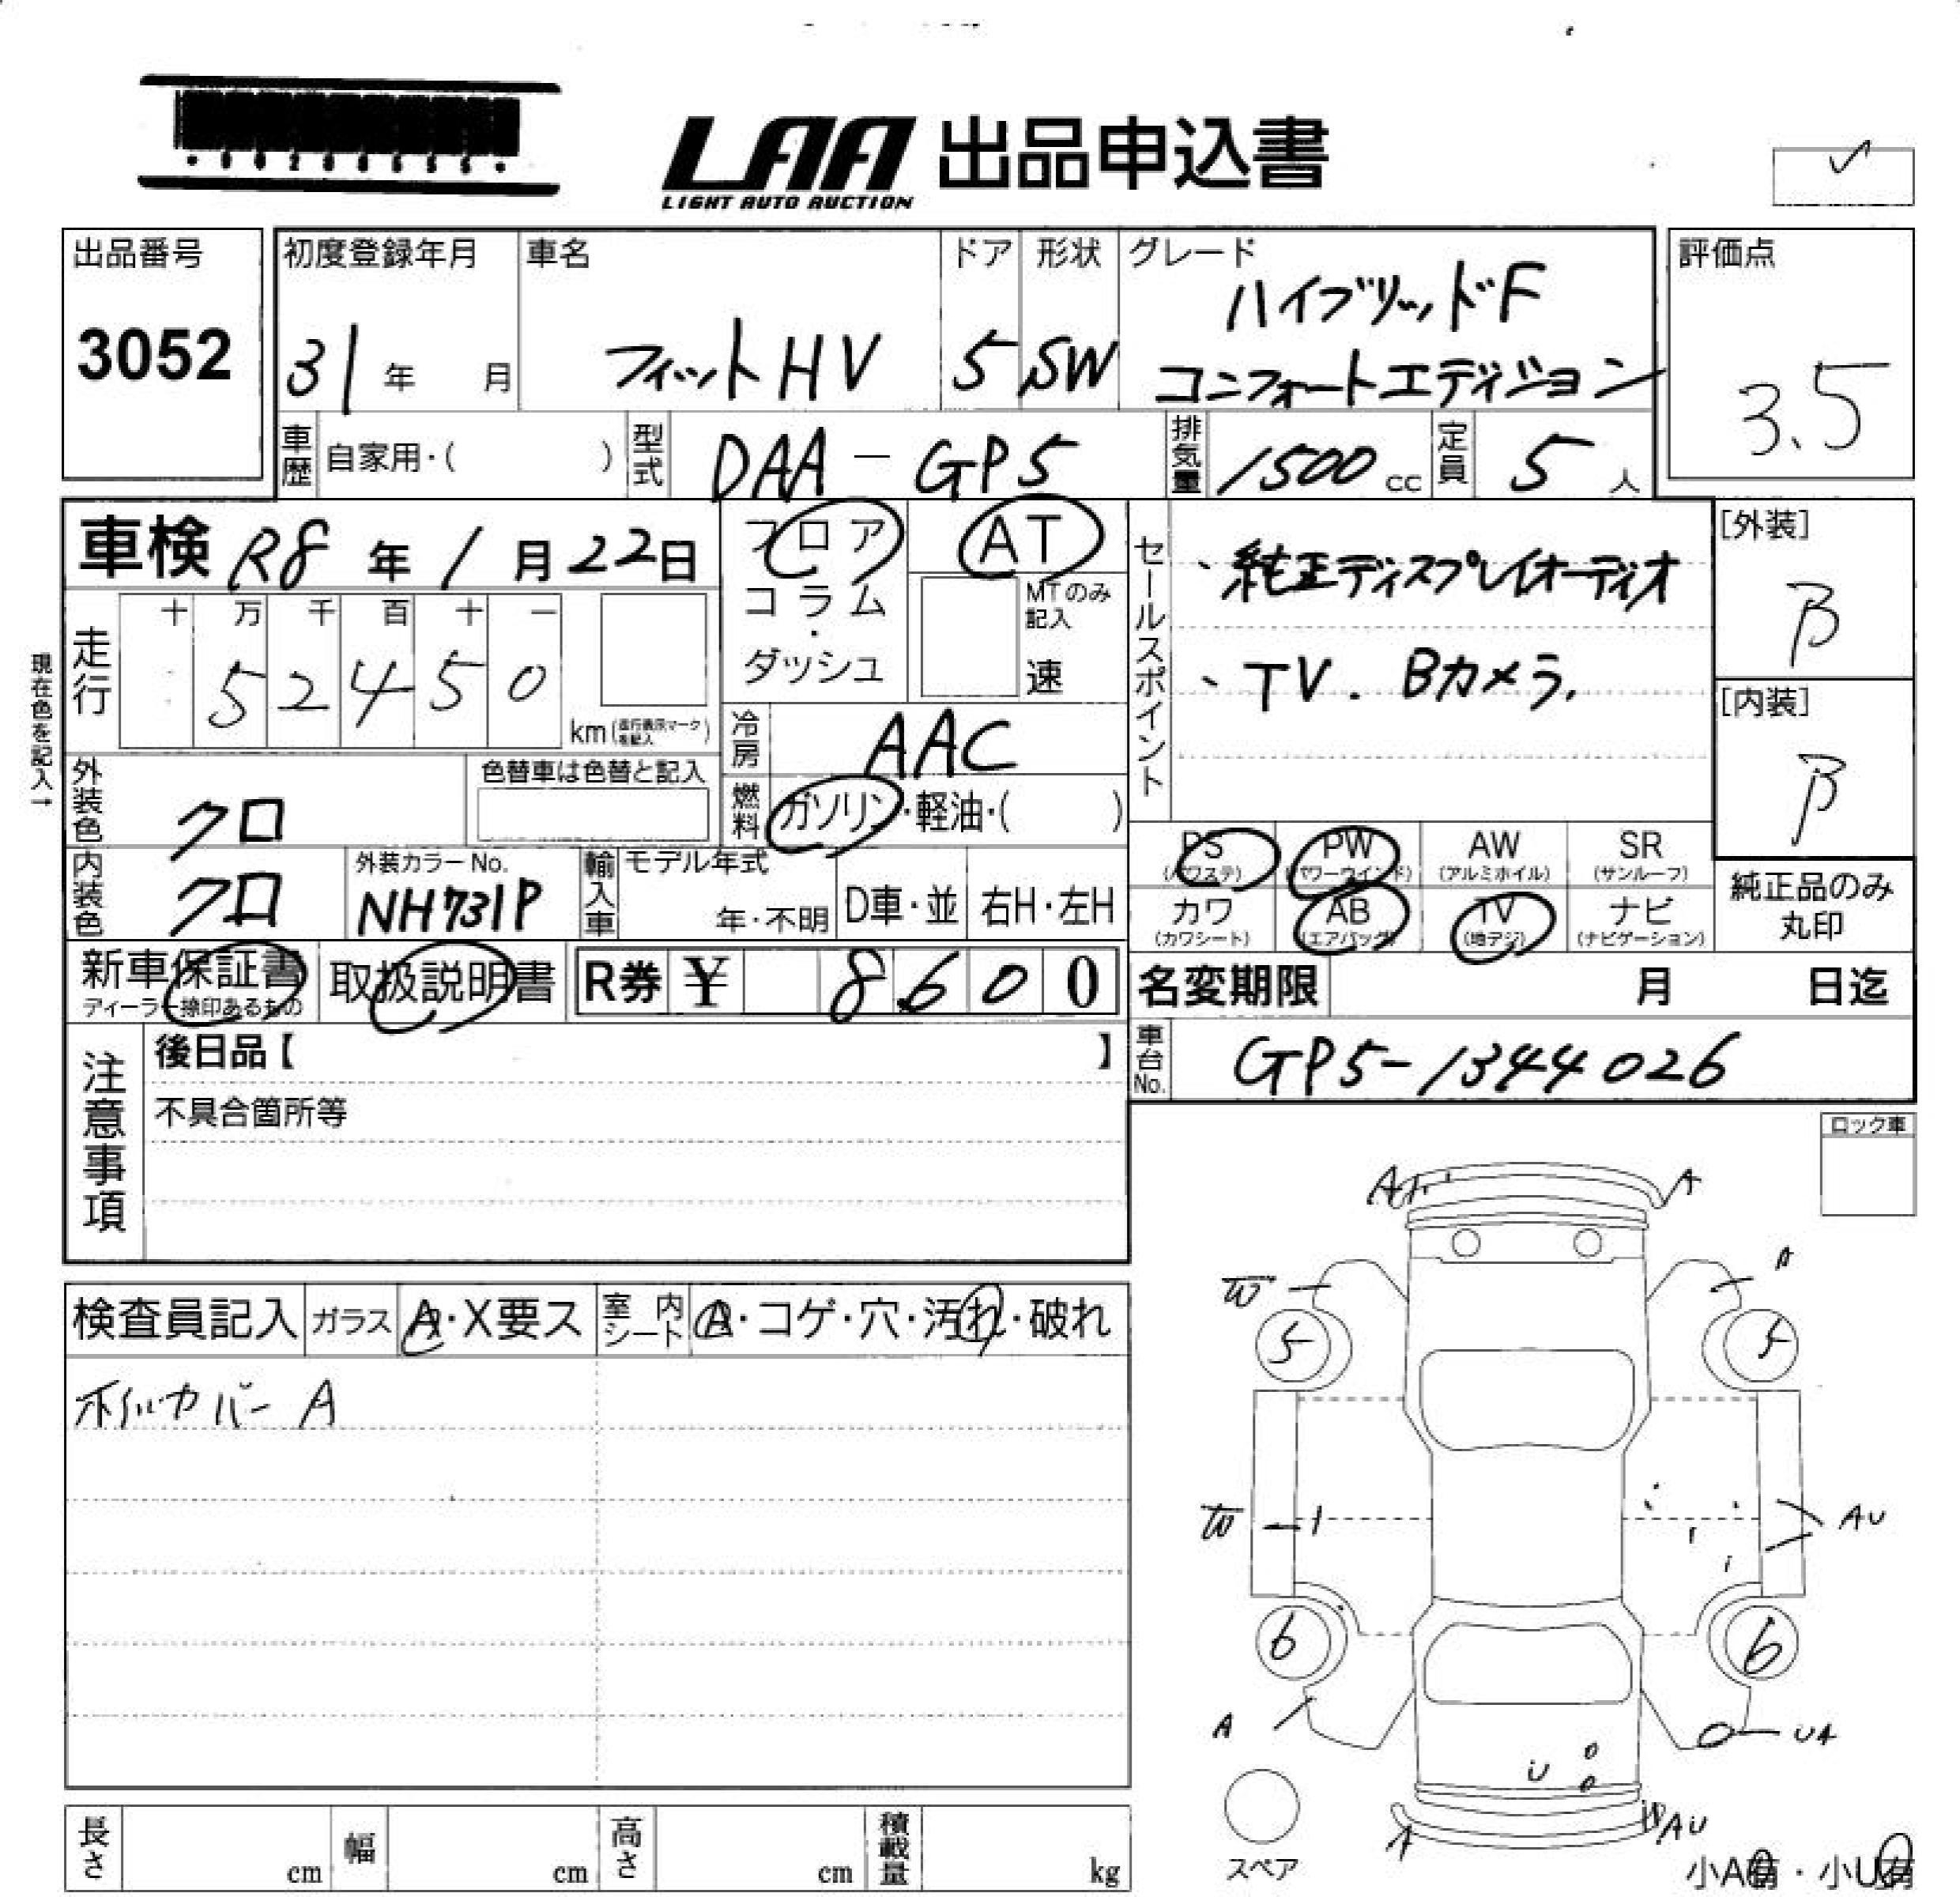 LAA 出品申込書
LIGHT AUTO AUCTION
出品番号
3052
初度登録年月
31年 月
車名
フィットHV
ドア
5
形状
SW
グレード
ハイブリッドF
コンフォートエディション
評価点
3.5
車歴 自家用・( )
型式 DAA-GP5
排気量 1500cc
定員 5人
車検 R8年1月22日
フロア
コラム
・
ダッシュ
AT
MTのみ
記入
速
セールスポイント
、純正ディスプレイオーディオ
、TV. Bカメラ.
[外装]
B
[内装]
B
現在色を記入→
走行
十 万 千 百 十 一
5 2 4 5 0
km(走行表示マークを記入)
冷房 AAC
外装色 クロ
色替車は色替と記入
燃料 ガソリン・軽油・( )
内装色 クロ
外装カラーNo.
NH731P
輸入車
モデル年式
年・不明
D車・並
右H・左H
PS
(パワステ)
PW
(パワーウインド)
AW
(アルミホイル)
SR
(サンルーフ)
カワ
(カワシート)
AB
(エアバッグ)
TV
(地デジ)
ナビ
(ナビゲーション)
純正品のみ
丸印
新車保証書
ディーラー捺印あるもの
取扱説明書
R券 ¥ 8600
名変期限 月 日迄
車台No. GP5-1344026
注意事項
後日品【 】
不具合箇所等
ロック車
検査員記入
ガラス A・X要ス
室内シート A・コゲ・穴・汚れ・破れ
ホイルカバー A
A
A
W
A
5
5
W
AU
6
6
A
UA
U
A
AU
スペア
小A有・小U有
長さ cm
幅 cm
高さ cm
積載量 kg